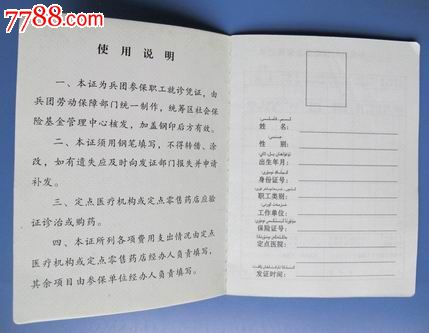 7788.com
使用说明
一、本证为兵团参保职工就诊凭证，由
兵团劳动保障部门统一制作，统筹区社会保
险基金管理中心核发，加盖钢印后方有效。
二、本证须用钢笔填写，不得转借、涂
改，如有遗失应及时向发证部门报失并申请
补发。
三、定点医疗机构或定点零售药店应验
证诊治或购药。
四、本证所列各项费用支出情况由定点
医疗机构或定点零售药店经办人负责填写，
其余项目由参保单位经办人负责填写。
姓名：
性别：
出生年月：
身份证号：
职工类别：
工作单位：
保险证号：
定点医院：
发证时间：